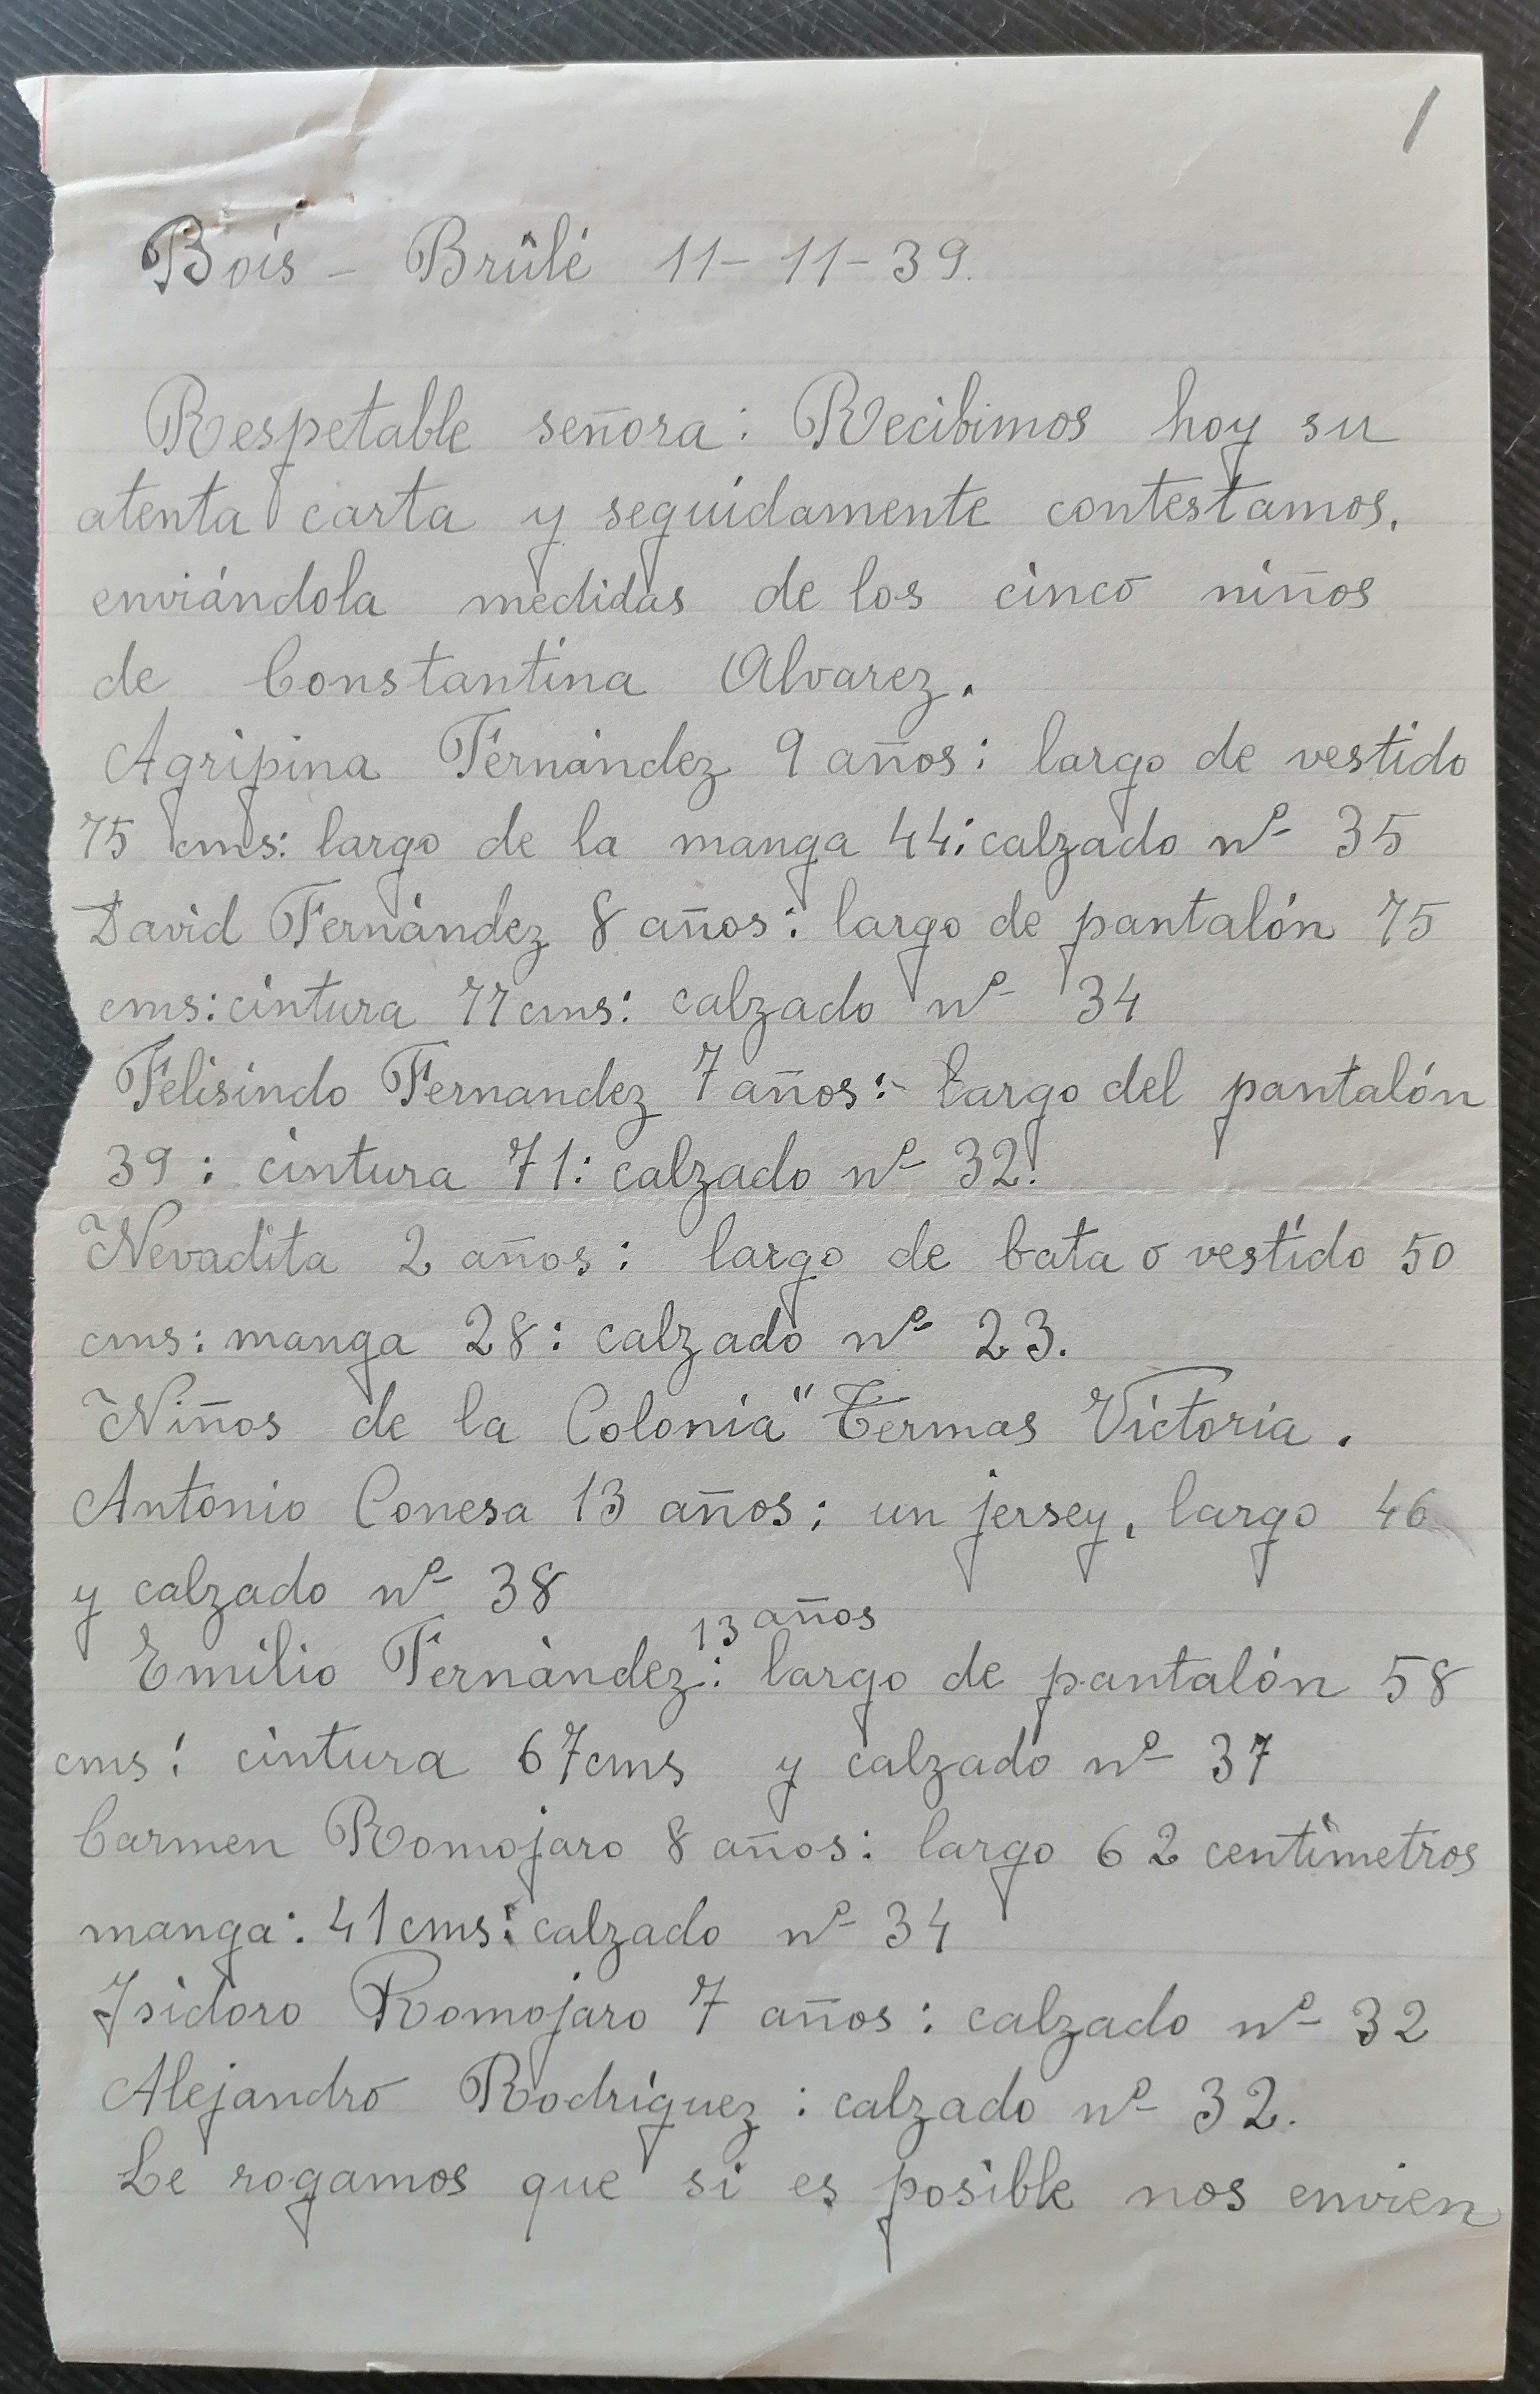 1
Boís - Brûlé 11-11-39.
Respetable señora: Recibimos hoy su
atenta carta y seguidamente contestamos,
enviándola medidas de los cinco niños
de Constantina Alvarez.
Agripina Fernández 9 años: largo de vestido
75 cms: largo de la manga 44: calzado nº 35
David Fernández 8 años: largo de pantalón 75
cms: cintura 77 cms: calzado nº 34
Felisindo Fernandez 7 años:- largo del pantalón
39: cintura 71: calzado nº 32.
Nevadita 2 años: largo de bata o vestido 50
cms: manga 28: calzado nº 23.
Niños de la Colonia "Termas Victoria.
Antonio Conesa 13 años; un jersey, largo 46
y calzado nº 38
13 años
Emilio Fernández: largo de pantalón 58
cms: cintura 67 cms y calzado nº 37
Carmen Romojaro 8 años: largo 62 centímetros
manga: 41 cms: calzado nº 34
Isidoro Romojaro 7 años: calzado nº 32
Alejandro Rodríguez: calzado nº 32.
Le rogamos que si es posible nos envien